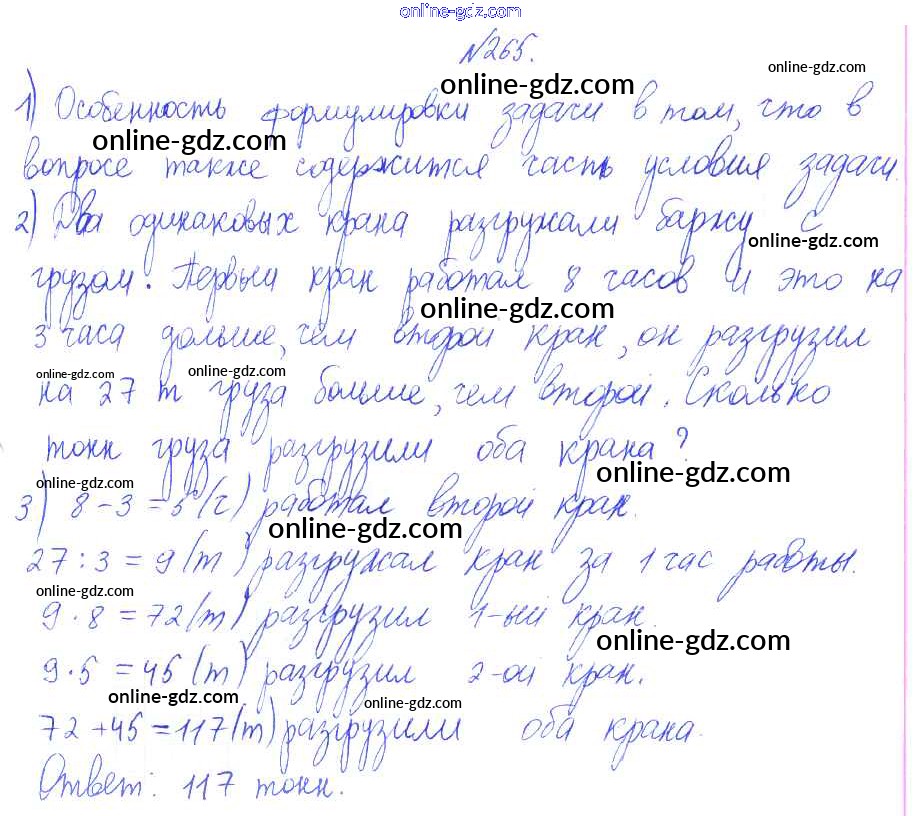 online-gdz.com
№265.
online-gdz.com
online-gdz.com
1) Особенность формулировки задачи в том, что в
online-gdz.com
вопросе также содержится часть условия задачи.
2) Два одинаковых крана разгружали баржу с
online-gdz.com
грузом. Первый кран работал 8 часов и это на
online-gdz.com
3 часа дольше, чем второй кран, он разгрузил
online-gdz.com
online-gdz.com
на 27 т груза больше, чем второй. Сколько
тонн груза разгрузили оба крана?
online-gdz.com
online-gdz.com
3) 8-3=5(ч) работал второй кран.
online-gdz.com
27:3=9(т) разгружал кран за 1 час работы.
online-gdz.com
9·8=72(т) разгрузил 1-ый кран.
online-gdz.com
9·5=45(т) разгрузил 2-ой кран.
online-gdz.com
online-gdz.com
72+45=117(т) разгрузили оба крана.
Ответ: 117 тонн.